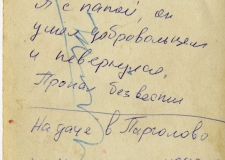 Я с папой, он
ушел добровольцем
и невернулся,
Пропал без вести
На даче в Парголово